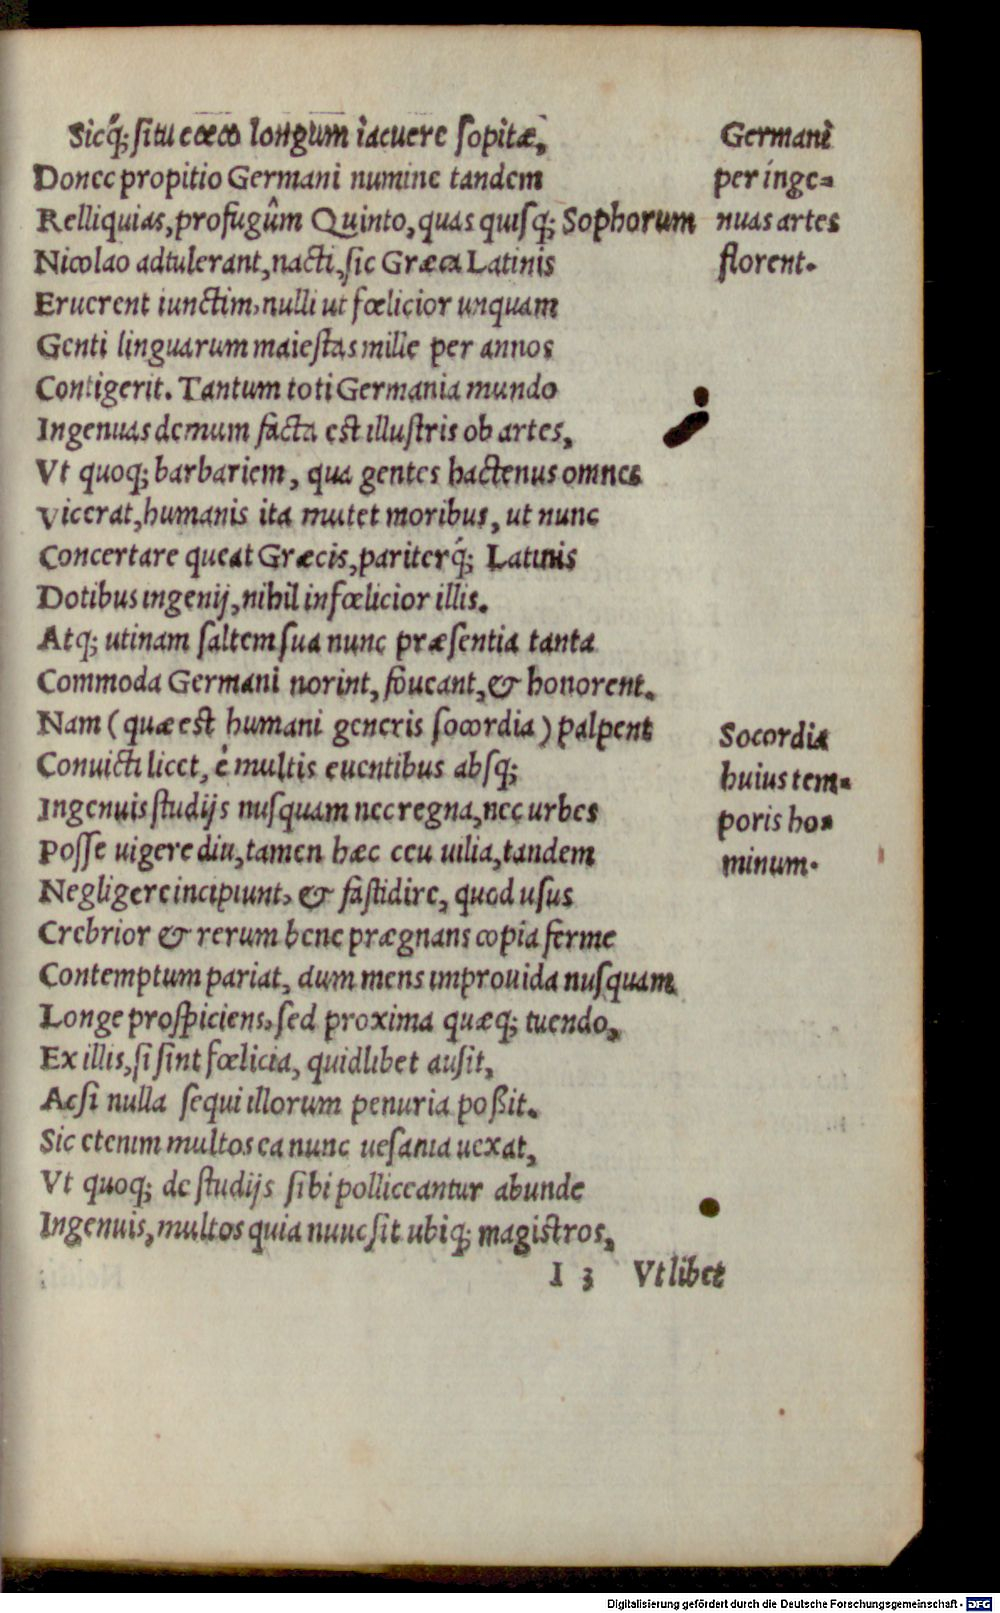 Sicq́; ſitu cœco longum iacuere ſopitæ,
Donec propitio Germani numine tandem
Relliquias, profugûm Quinto, quas quiſq; Sophorum
Nicolao adtulerant, nacti, ſic Græca Latinis
Eruerent iunctim, nulli ut fœlicior unquam
Genti linguarum maieſtas mille per annos
Contigerit. Tantum toti Germania mundo
Ingenuas demum facta eſt illuſtris ob artes,
Vt quoq; barbariem, qua gentes hactenus omnes
Vicerat, humanis ita mutet moribus, ut nunc
Concertare queat Græcis, pariterq́; Latinis
Dotibus ingenij, nihil infœlicior illis.
Atq; utinam ſaltem ſua nunc præſentia tanta
Commoda Germani norint, foueant, & honorent.
Nam (quæ eſt humani generis ſocordia) palpent
Conuicti licet, è multis euentibus abſq;
Ingenuis ſtudijs nuſquam nec regna, nec urbes
Poſſe uigere diu, tamen hæc ceu uilia, tandem
Negligere incipiunt, & faſtidire, quod uſus
Crebrior & rerum bene prægnans copia ferme
Contemptum pariat, dum mens improuida nuſquam
Longe proſpiciens, ſed proxima quæq; tuendo,
Ex illis, ſi ſint fœlicia, quidlibet auſit,
Acſi nulla ſequi illorum penuria poßit.
Sic etenim multos ea nunc ueſania uexat,
Vt quoq; de ſtudijs ſibi polliceantur abunde
Ingenuis, multos quia nunc ſit ubiq; magiſtros,
I 3 Vt libet
Germani
per inge-
nuas artes
florent.
Socordia
huius tem-
poris ho-
minum.
Digitalisierung gefördert durch die Deutsche Forschungsgemeinschaft - DFG